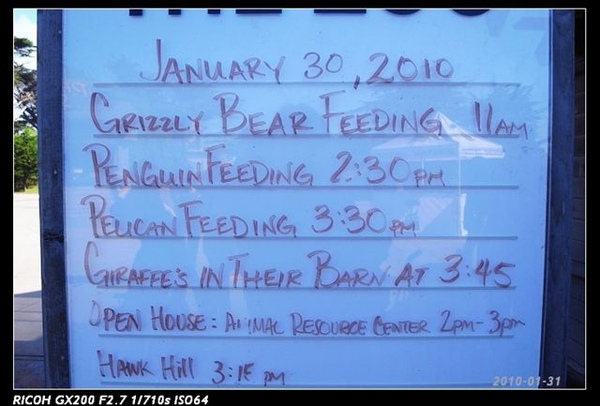 January 30, 2010
Grizzly Bear Feeding 11am
Penguin Feeding 2:30pm
Pelican Feeding 3:30pm
Giraffe's in Their Barn at 3:45
Open House: Animal Resource Center 2pm-3pm
Hawk Hill 3:15 pm
2010-01-31
RICOH GX200 F2.7 1/710s ISO64